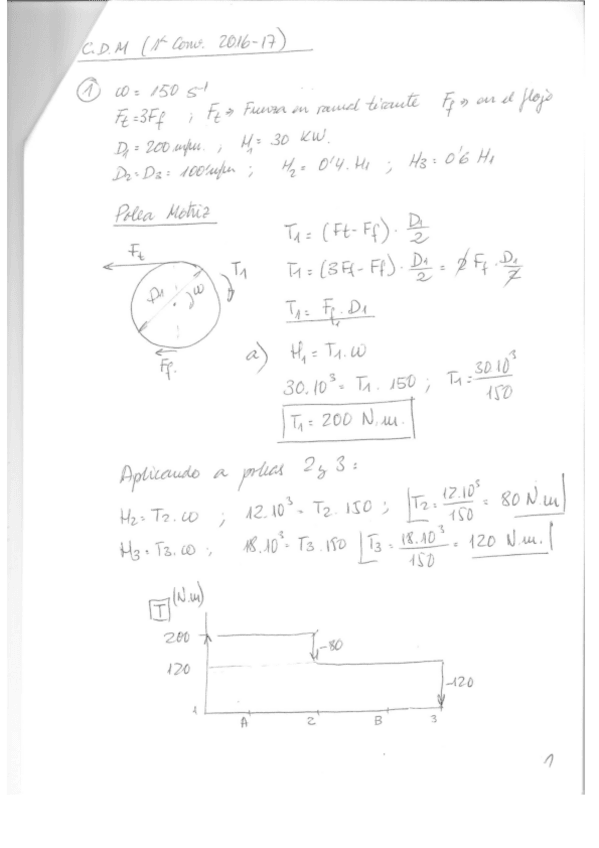 C.D.M (1ª Conv. 2016-17)
① ω = 150 s⁻¹
Ft = 3Ff ; Ft ⇒ Fuerza en ramal tirante Ff ⇒ en el flojo
D1 = 200 mm ; H1 = 30 KW.
D2 = D3 = 100 mm ; H2 = 0'4. H1 ; H3 = 0'6 H1
Polea Motriz
T1 = (Ft - Ff) · D1/2
Ft
T1
T1 = (3Ff - Ff) · D1/2 = 2 Ff · D1/2
D1
ω
T1 = Ff . D1
Ff.
a) H1 = T1. ω
30.10³ = T1. 150 ; T1 = 30.10³/150
T1 = 200 N.m.
Aplicando a poleas 2 y 3 :
H2 = T2. ω ; 12.10³ = T2. 150 ; T2 = 12.10³/150 = 80 N.m
H3 = T3. ω ; 18.10³ = T3. 150 T3 = 18.10³/150 = 120 N.m.
T (N.m)
200
-80
120
-120
1 A 2 B 3
1